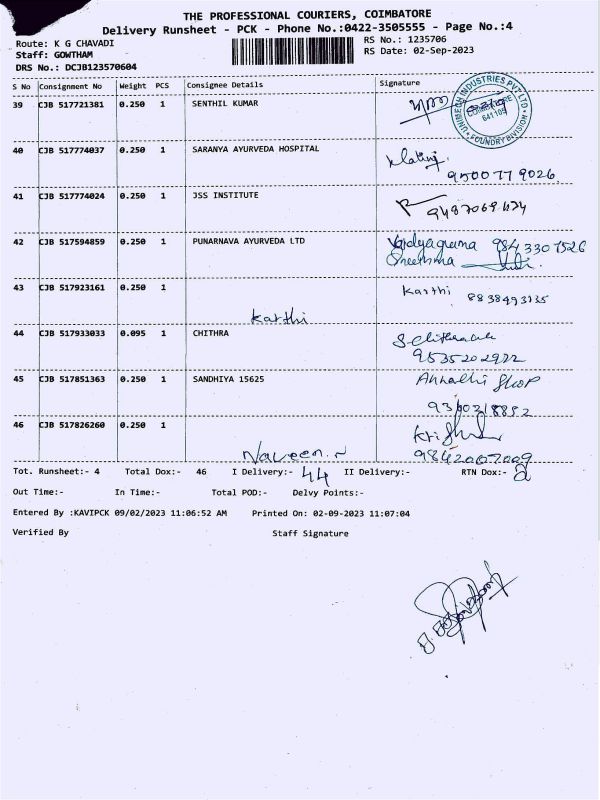 THE PROFESSIONAL COURIERS, COIMBATORE
Delivery Runsheet - PCK - Phone No.:0422-3505555 - Page No.:4
Route: K G CHAVADI
RS No.: 1235706
Staff: GOWTHAM
RS Date: 02-Sep-2023
DRS No.: DCJB123570604
S No Consignment No Weight PCS Consignee Details Signature
39 CJB 517721381 0.250 1 SENTHIL KUMAR
UNIMECH INDUSTRIES PVT LTD
COIMBATORE
641 105
FOUNDRY DIVISION
40 CJB 517774037 0.250 1 SARANYA AYURVEDA HOSPITAL
9500779026
41 CJB 517774024 0.250 1 JSS INSTITUTE
42 CJB 517594859 0.250 1 PUNARNAVA AYURVEDA LTD
Vaidyagrama 9843307526
43 CJB 517923161 0.250 1 Karthi
Karthi 8838493135
44 CJB 517933033 0.095 1 CHITHRA
9535202922
45 CJB 517851363 0.250 1 SANDHIYA 15625
Shop
9360318852
46 CJB 517826260 0.250 1 Naveen.n
9842007009
Tot. Runsheet:- 4 Total Dox:- 46 I Delivery:- 44 II Delivery:- RTN Dox:- 2
Out Time:- In Time:- Total POD:- Delvy Points:-
Entered By :KAVIPCK 09/02/2023 11:06:52 AM Printed On: 02-09-2023 11:07:04
Verified By Staff Signature